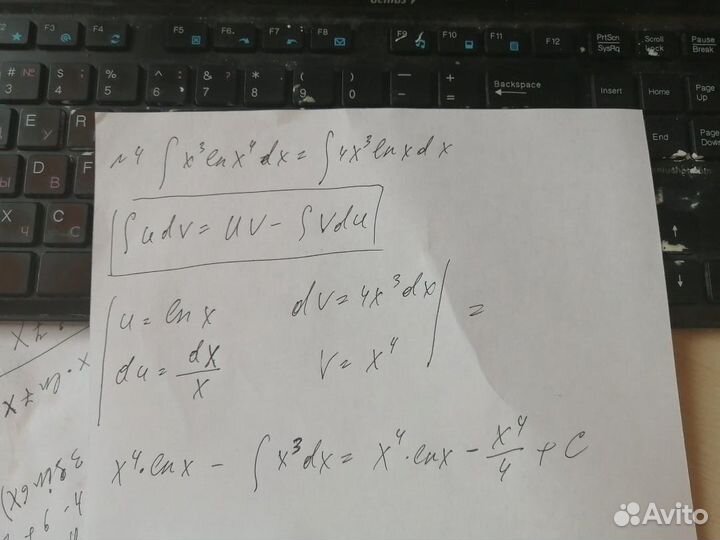 Genius P
F2 F3 F4 F5 F6 F7 F8 F9 F10 F11 F12 PrtScn SysRq Scroll Lock Pause Break
# 3 № $ 4 ; % 5 ^ 6 : & 7 ? * 8 ( 9 ) 0 _ - + = Backspace Insert Home Page Up
E У R К
End Page Down
D В F А
X Ч C С
№4 ∫ x³ ln x⁴ dx = ∫ 4x³ ln x dx
∫ u dv = uv - ∫ v du
u = ln x dv = 4x³ dx
du = dx/x v = x⁴ =
x⁴ · ln x - ∫ x³ dx = x⁴ · ln x - x⁴/4 + C
x · ln 7x
3 sin 6x)
Avito